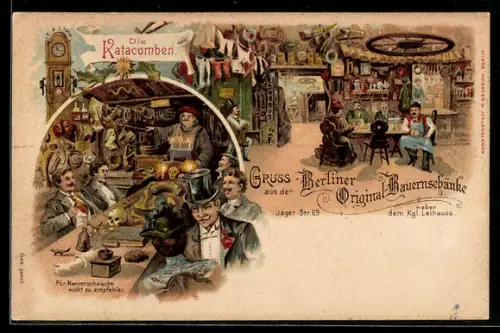 Die
Katacomben.
Gruss
aus der
Berliner
Original-Bauernschänke
Jäger Str. 69
neben
dem Kgl. Leihause.
Für Nervenschwache
nicht zu empfehlen.
Ges. gesch.